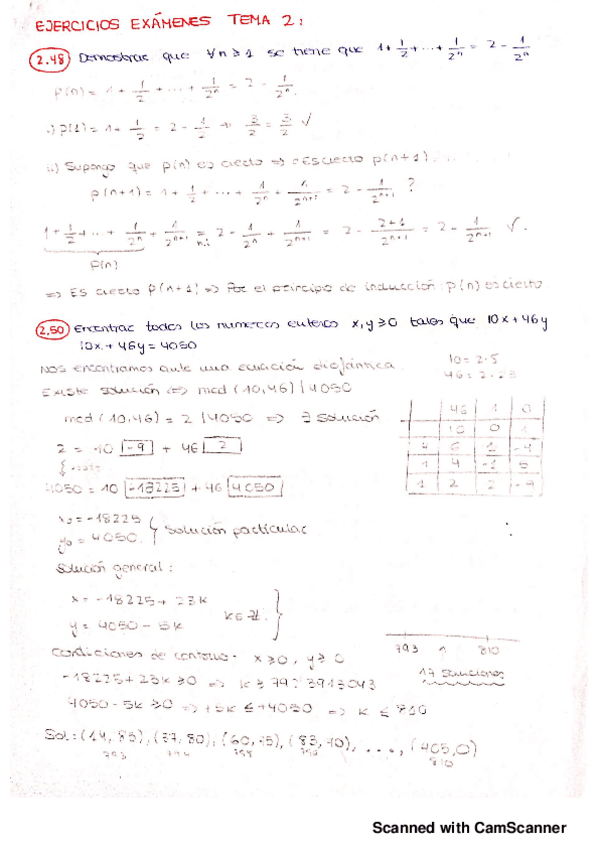 EJERCICIOS EXÁMENES TEMA 2:
2.48 Demostrar que ∀n≥1 se tiene que 1+1/2+...+1/2^n = 2 - 1/2^n
p(n) = 1 + 1/2 + ... + 1/2^n = 2 - 1/2^n.
i) p(1) = 1 + 1/2 = 2 - 1/2 → 3/2 = 3/2 ✓
ii) Supongo que p(n) es cierto ⇒ ¿Es cierto p(n+1)
p(n+1) = 1 + 1/2 + ... + 1/2^n + 1/2^(n+1) = 2 - 1/2^(n+1) ?
1 + 1/2 + ... + 1/2^n + 1/2^(n+1) = 2 - 1/2^n + 1/2^(n+1) = 2 - (2+1)/2^(n+1) = 2 - 1/2^(n+1) ✓.
p(n)
⇒ Es cierto p(n+1) ⇒ Por el principio de inducción p(n) es cierto
2.50 Encontrar todos los numeros enteros x,y≥0 tales que 10x+46y
10x+46y=4050
Nos encontramos ante una ecuación diofántica.
10=2·5
46=2·23
Existe solución ⇔ mcd(10,46) | 4050
mcd(10,46) = 2 | 4050 ⇒ ∃ solución
46 1 0
10 0 1
4 6 1 -4
1 4 -1 5
1 2 2 -9
2 = 10 -9 + 46 2
4050 = 10 -18225 + 46 4050
x0=-18225
y0=4050
solución particular
Solución general:
x = -18225 + 23k
y = 4050 - 5k
k∈ℤ
793 1 810
17 soluciones
Condiciones de contorno: x≥0, y≥0
-18225+23k≥0 ⇒ k≥79'3913043
4050-5k≥0 ⇒ +5k≤+4050 ⇒ k≤810
Sol: (14,85), (37,80), (60,75), (83,70), ..., (405,0)
793 794 810
Scanned with CamScanner